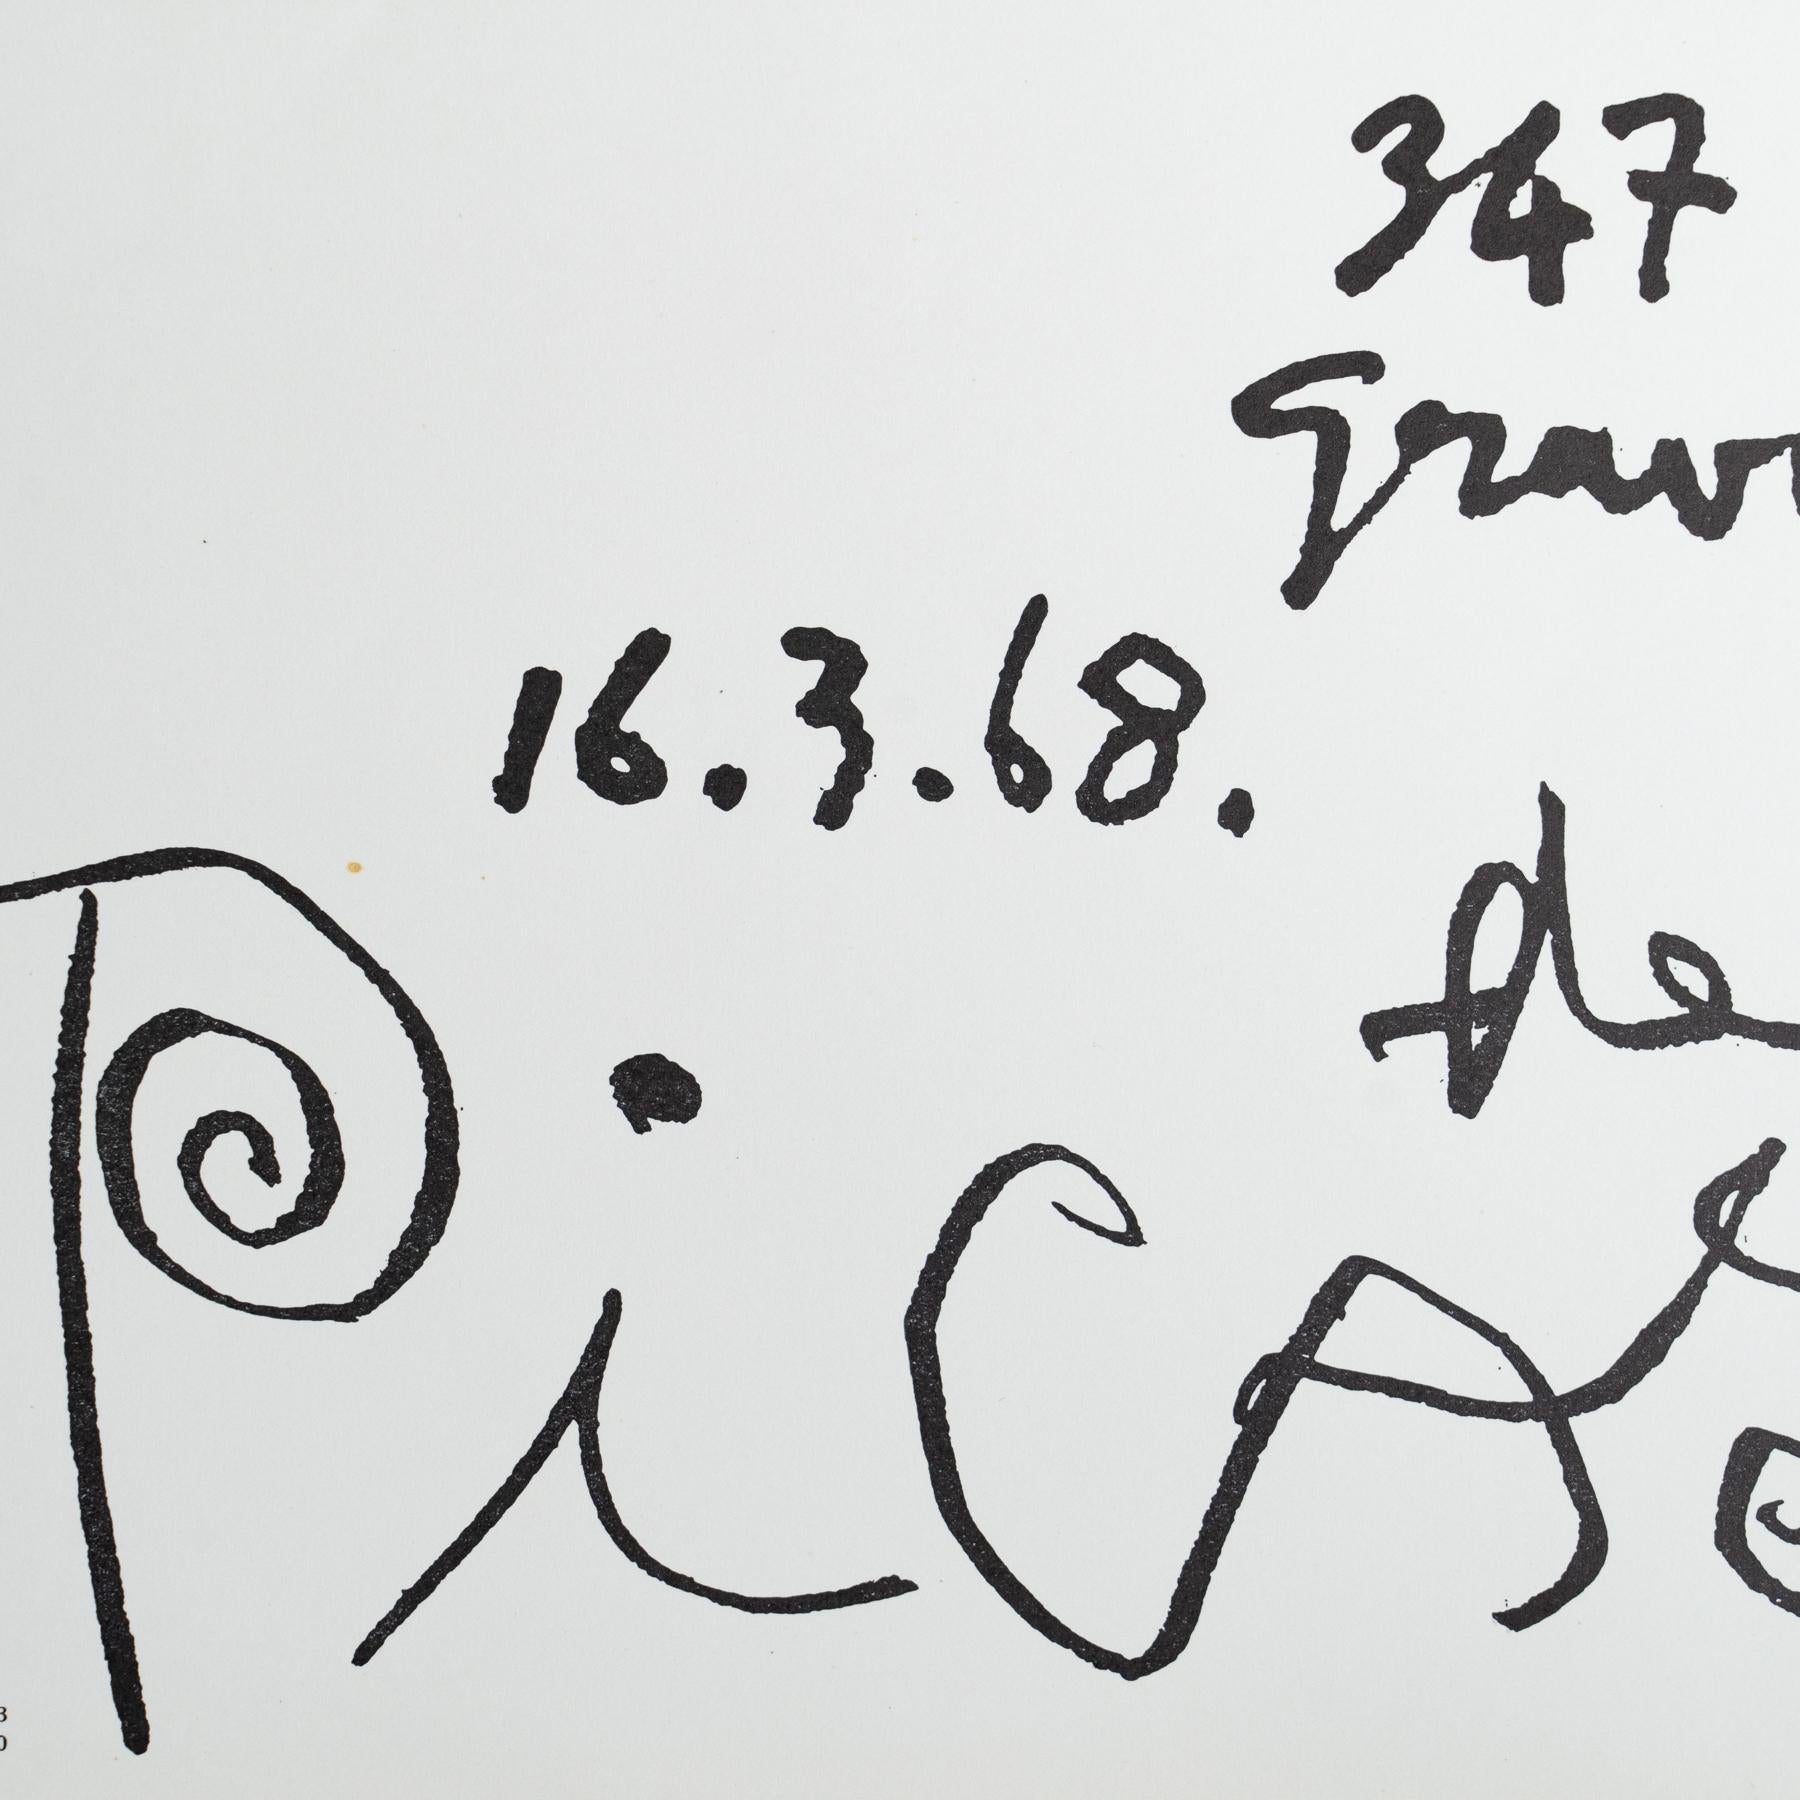 347
grav
16.3.68.
de
Picas
3
0